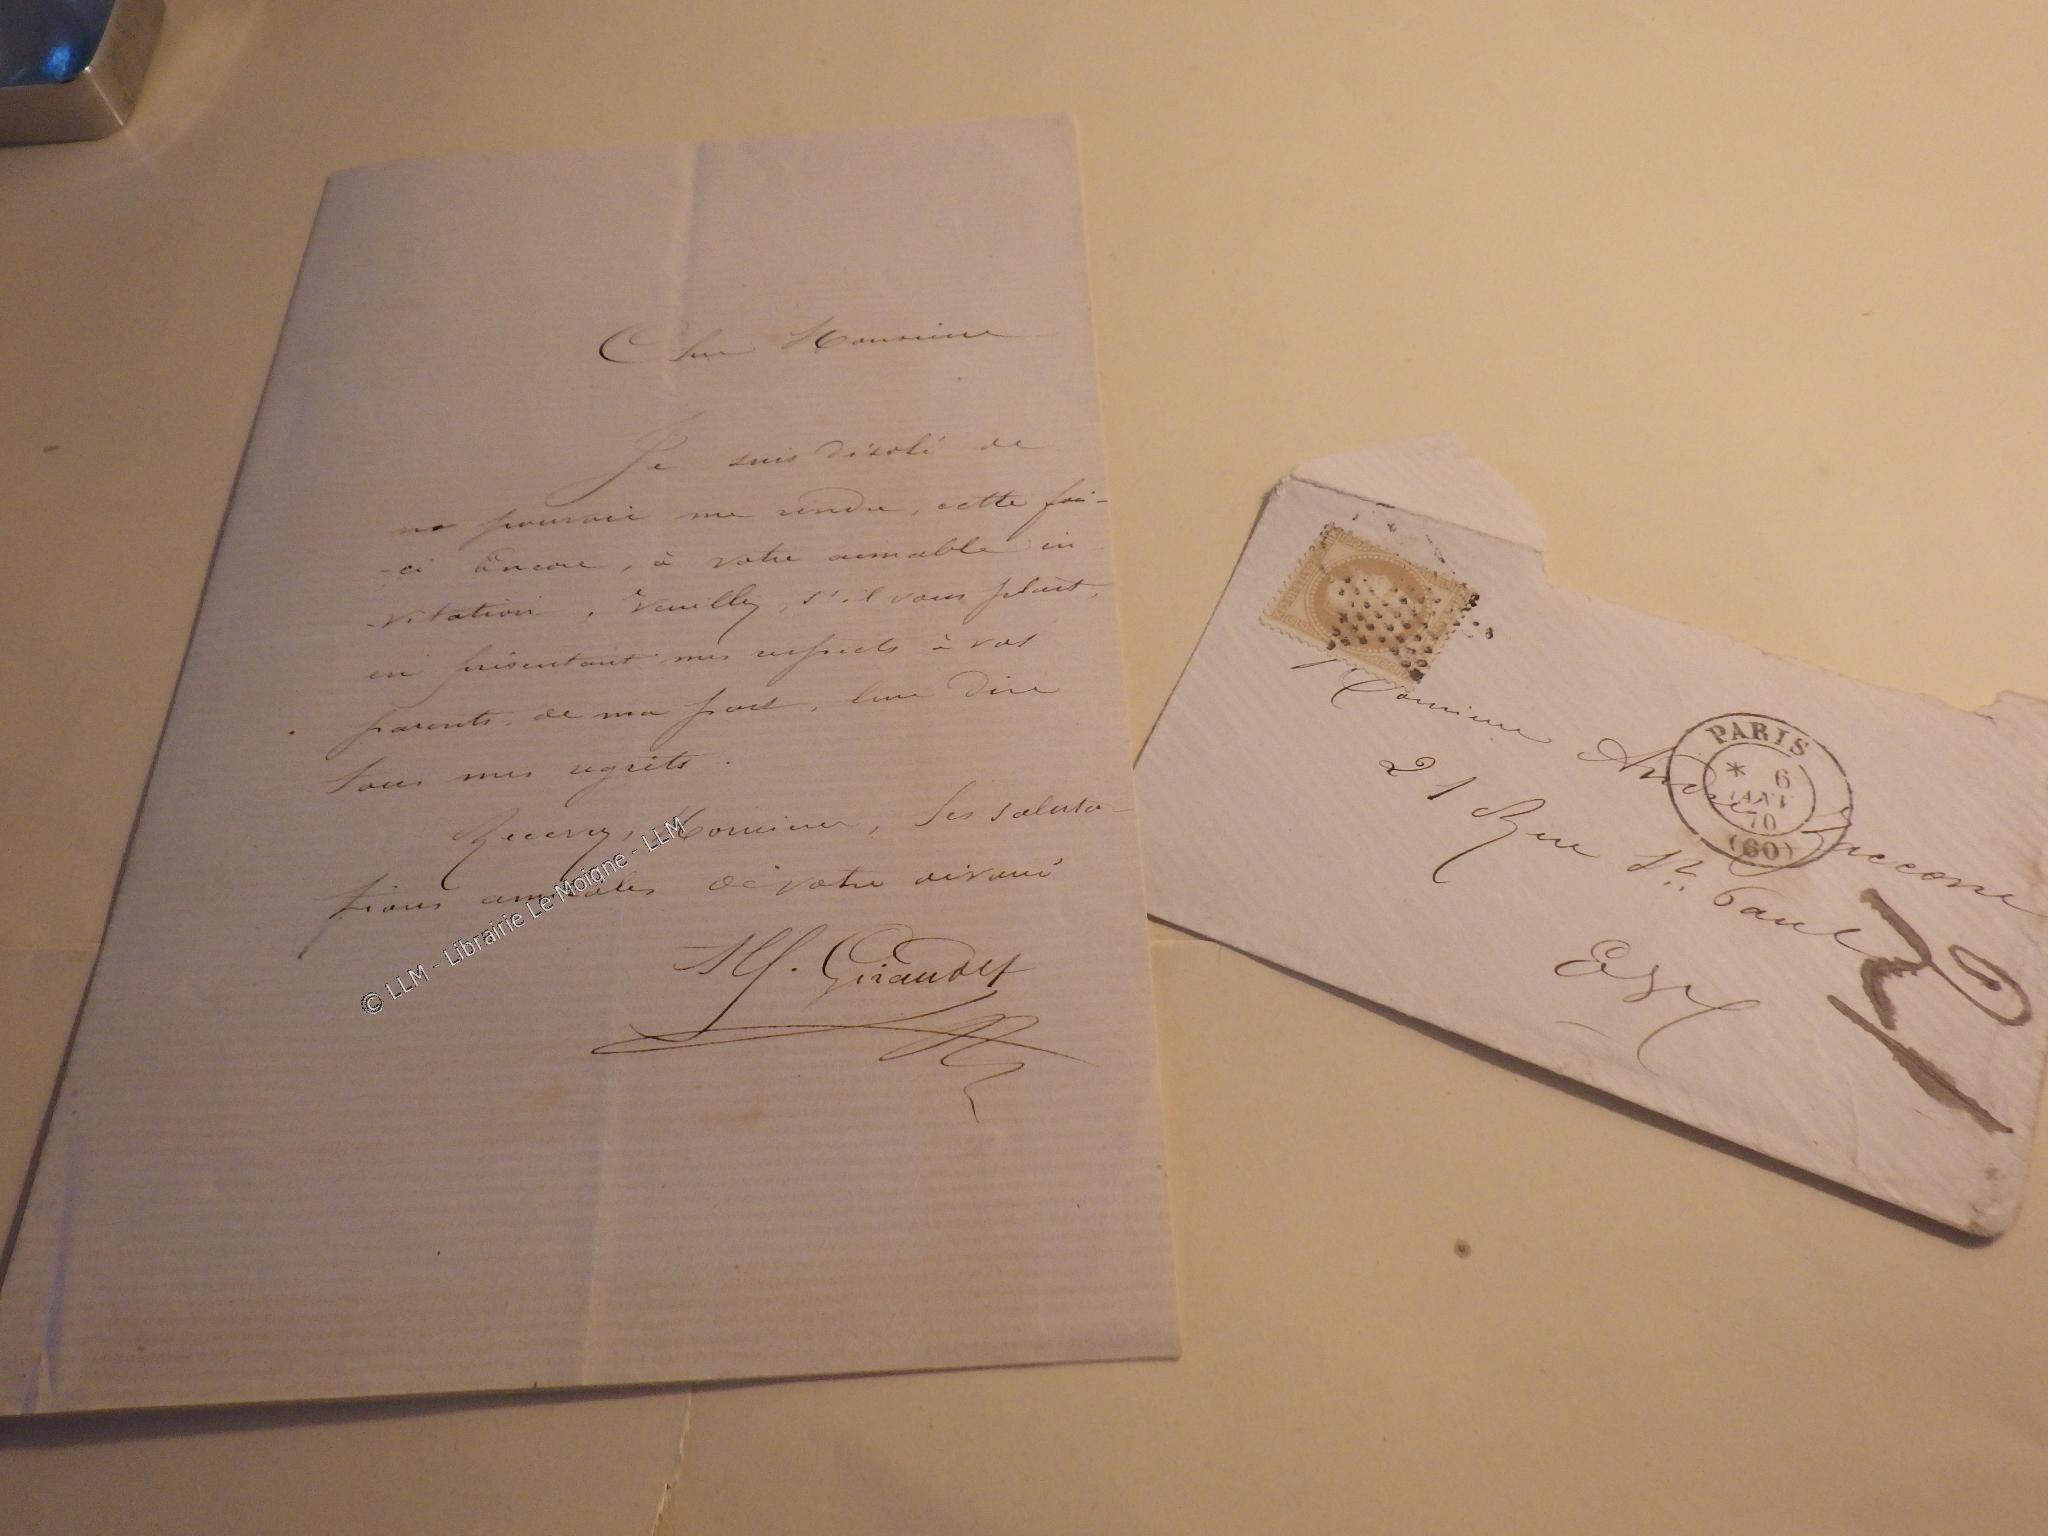 Cher Monsieur
Je suis désolé de
ne pouvoir me rendre, cette fois-
-ci Encore, à votre aimable in
-vitation. Veuillez, s'il vous plait,
en présentant mes respects à vos
parents de ma part, leur dire
tous mes regrets.
Recevez, Monsieur, les saluta-
tions amicales de votre dévoué
Giraudet
© LLM - Librairie Le Moigne - LLM
Monsieur André
21 Rue St. Paul
PARIS
* 6
JANV
70
(60)